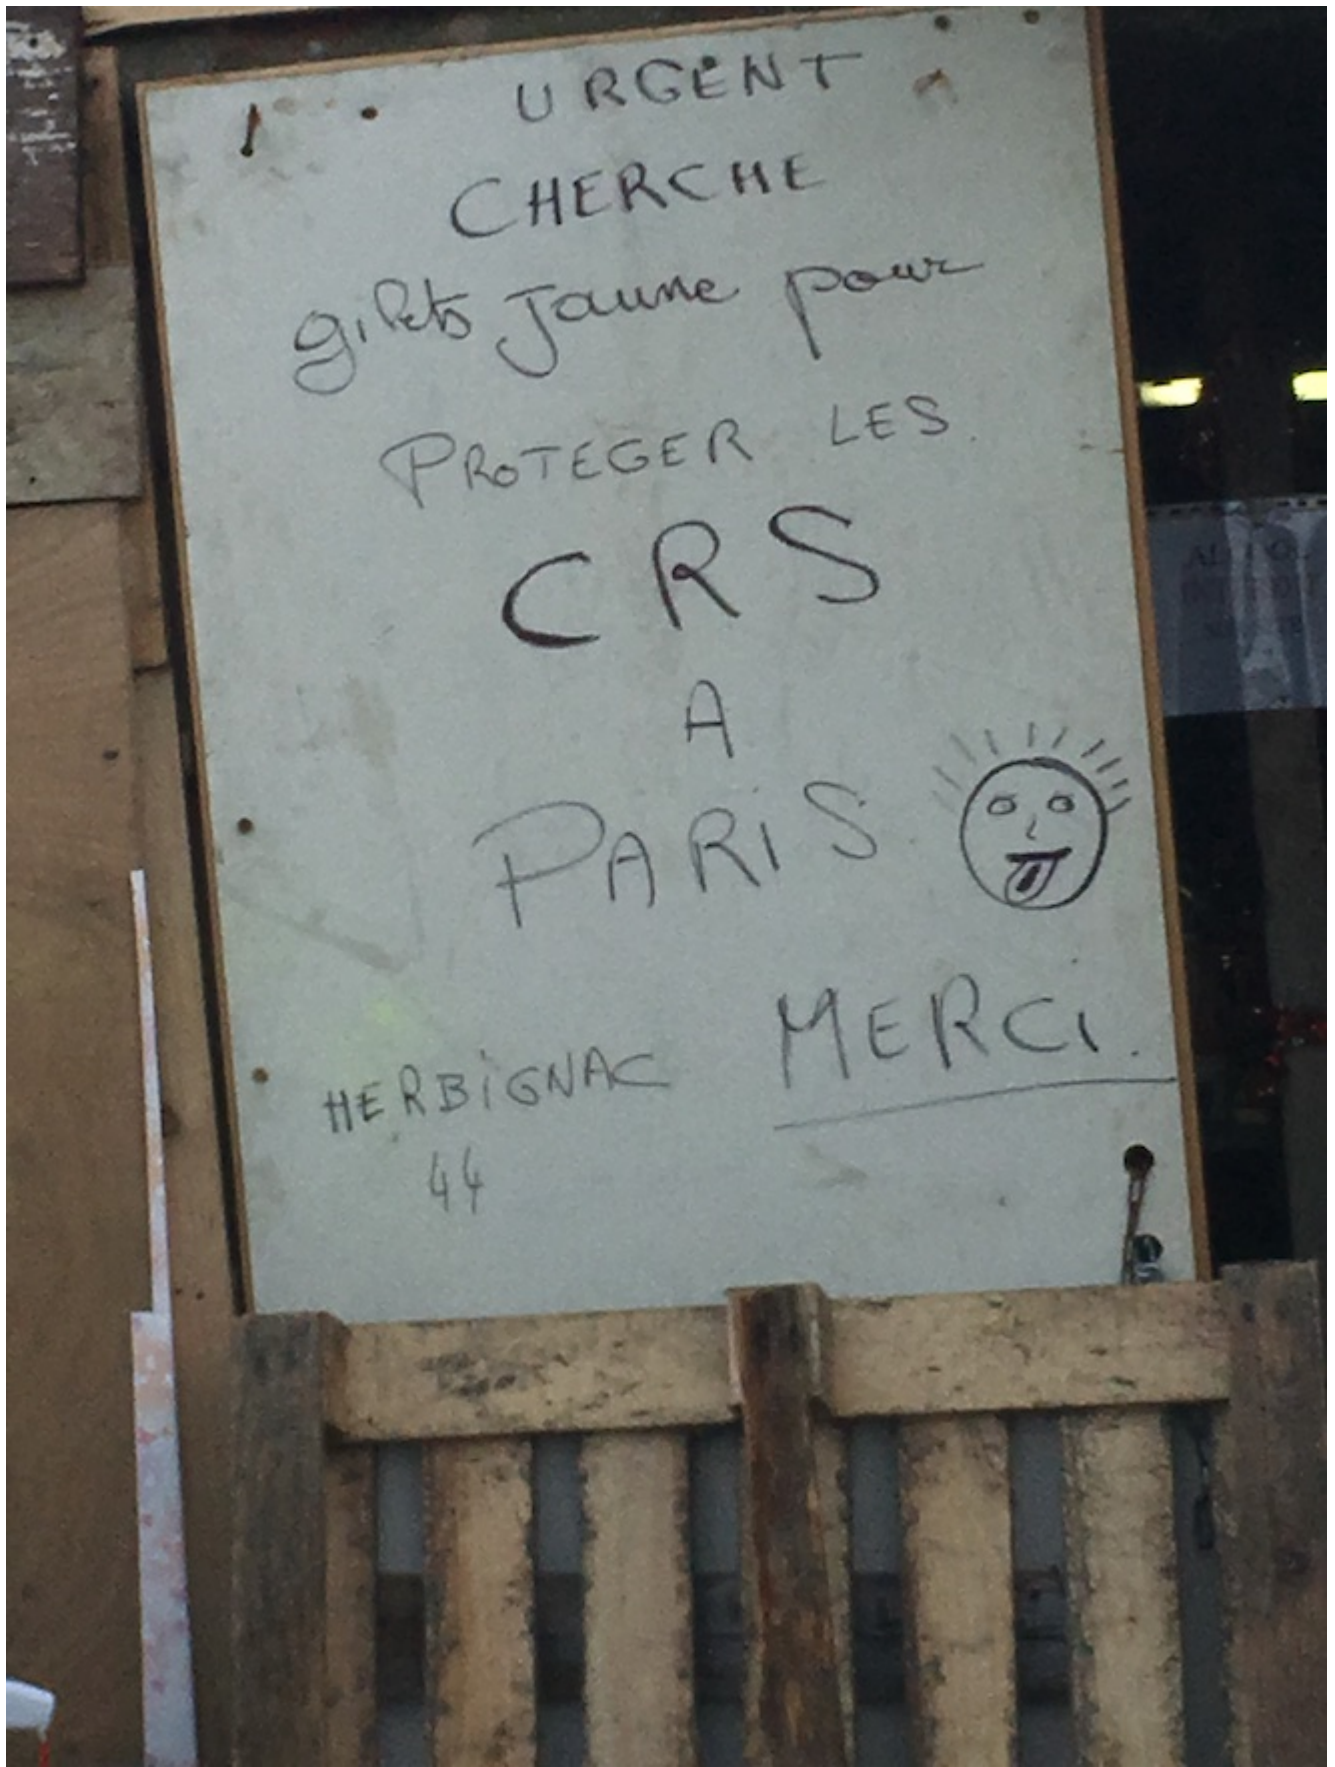 URGENT
CHERCHE
gilets Jaune pour
PROTEGER LES
CRS
A
PARiS
MERCi.
HERBiGNAC
44